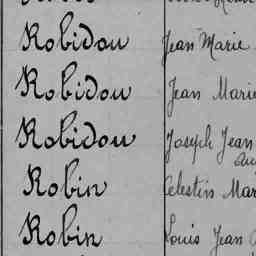 Robidou Jean Marie
Robidou Jean Marie
Robidou Joseph Jean
Robin Celestin Mar
Robin Louis Jean